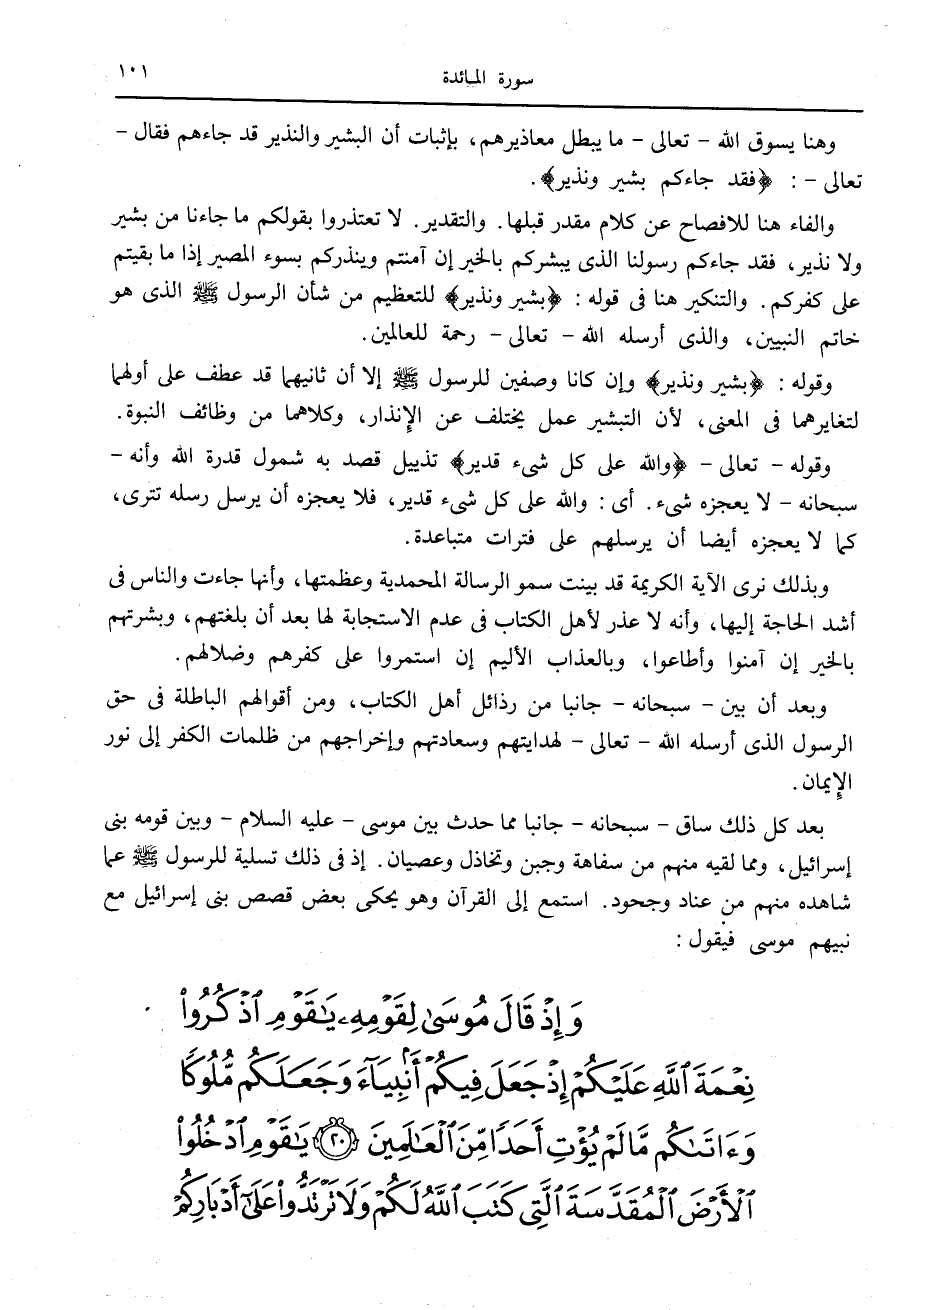 سورة المائدة
١٠١
وهنا يسوق الله - تعالى - ما يبطل معاذيرهم، بإثبات أن البشير والنذير قد جاءهم فقال -
تعالى - : ﴿فقد جاءكم بشير ونذير﴾.
والفاء هنا للافصاح عن كلام مقدر قبلها. والتقدير. لا تعتذروا بقولكم ما جاءنا من بشير
ولا نذير، فقد جاءكم رسولنا الذى يبشركم بالخير إن آمنتم وينذركم بسوء المصير إذا ما بقيتم
على كفركم. والتنكير هنا فى قوله : ﴿بشير ونذير﴾ للتعظيم من شأن الرسول ﷺ الذى هو
خاتم النبيين، والذى أرسله الله - تعالى - رحمة للعالمين.
وقوله : ﴿بشير ونذير﴾ وإن كانا وصفين للرسول ﷺ إلا أن ثانيهما قد عطف على أولهما
لتغايرهما فى المعنى، لأن التبشير عمل يختلف عن الإنذار، وكلاهما من وظائف النبوة.
وقوله - تعالى - ﴿والله على كل شىء قدير﴾ تذييل قصد به شمول قدرة الله وأنه -
سبحانه - لا يعجزه شىء. أى : والله على كل شىء قدير، فلا يعجزه أن يرسل رسله تترى،
كما لا يعجزه أيضا أن يرسلهم على فترات متباعدة.
وبذلك نرى الآية الكريمة قد بينت سمو الرسالة المحمدية وعظمتها، وأنها جاءت والناس فى
أشد الحاجة إليها، وأنه لا عذر لأهل الكتاب فى عدم الاستجابة لها بعد أن بلغتهم، وبشرتهم
بالخير إن آمنوا وأطاعوا، وبالعذاب الأليم إن استمروا على كفرهم وضلالهم.
وبعد أن بين - سبحانه - جانبا من رذائل أهل الكتاب، ومن أقوالهم الباطلة فى حق
الرسول الذى أرسله الله - تعالى - لهدايتهم وسعادتهم وإخراجهم من ظلمات الكفر إلى نور
الإيمان.
بعد كل ذلك ساق - سبحانه - جانبا مما حدث بين موسى - عليه السلام - وبين قومه بنى
إسرائيل، ومما لقيه منهم من سفاهة وجبن وتخاذل وعصيان. إذ فى ذلك تسلية للرسول ﷺ عما
شاهده منهم من عناد وجحود. استمع إلى القرآن وهو يحكى بعض قصص بنى إسرائيل مع
نبيهم موسى فيقول :
وَإِذْ قَالَ مُوسَىٰ لِقَوْمِهِۦ يَٰقَوْمِ ٱذْكُرُوا۟
نِعْمَةَ ٱللَّهِ عَلَيْكُمْ إِذْ جَعَلَ فِيكُمْ أَنۢبِيَآءَ وَجَعَلَكُم مُّلُوكًا
وَءَاتَىٰكُم مَّا لَمْ يُؤْتِ أَحَدًا مِّنَ ٱلْعَٰلَمِينَ ﴿٢٠﴾ يَٰقَوْمِ ٱدْخُلُوا۟
ٱلْأَرْضَ ٱلْمُقَدَّسَةَ ٱلَّتِى كَتَبَ ٱللَّهُ لَكُمْ وَلَا تَرْتَدُّوا۟ عَلَىٰٓ أَدْبَارِكُمْ